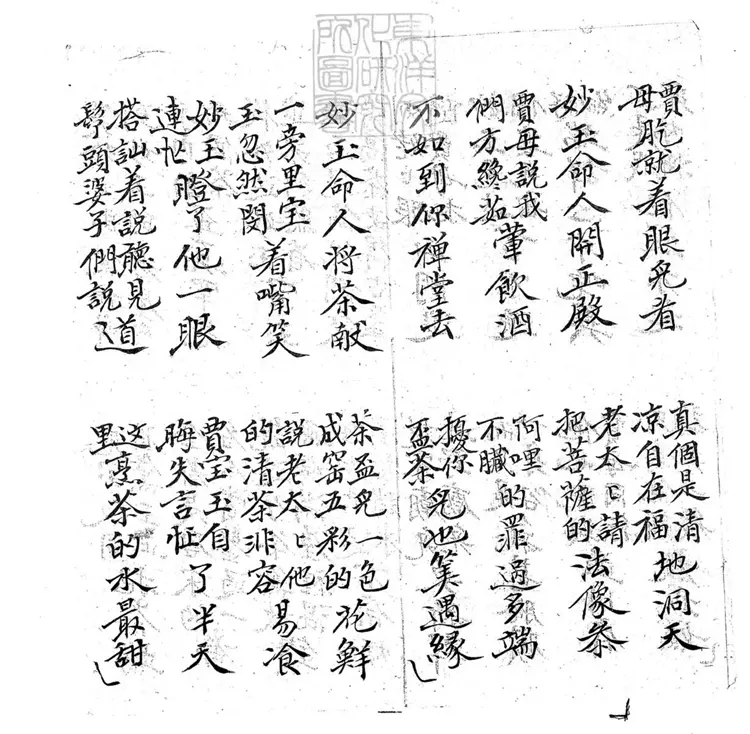 東洋文
化研究
所圖書
賈母肐就着眼兒看
真個是清凉自在福地洞天
妙玉命人開正殿
老太〻請把菩薩的法像叅
賈母說我們方纔茹葷飲酒
阿哩不臟的罪過多端
不如到你禅堂去
擾你盃茶兒也筭遇緣
妙玉命人将茶献
茶盃兒一色成窑五彩的花鮮
一旁里宝玉忽然閔着嘴笑
說老太〻他的清茶非容易飡
妙玉連忙瞪了他一眼
賈宝玉自晦失言怔了半天
搭訕着說聽見頭婆子們說道
这里烹茶的水最甜